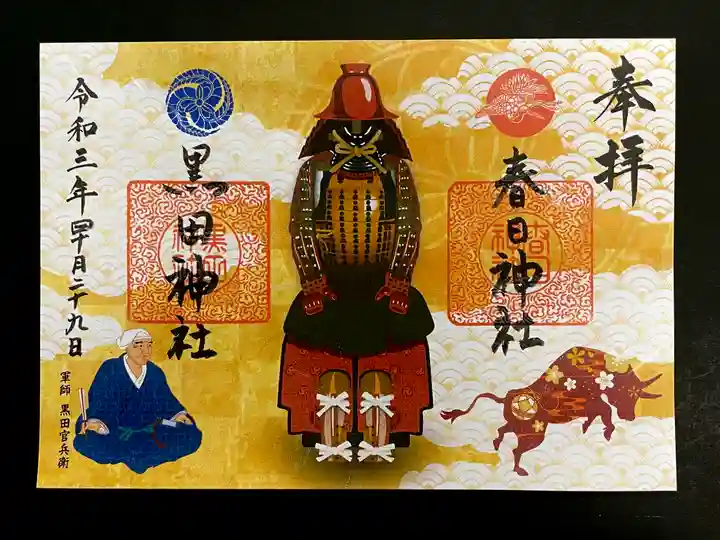 奉拝
春日神社
黒田神社
令和三年四月二十九日
軍師 黒田官兵衛